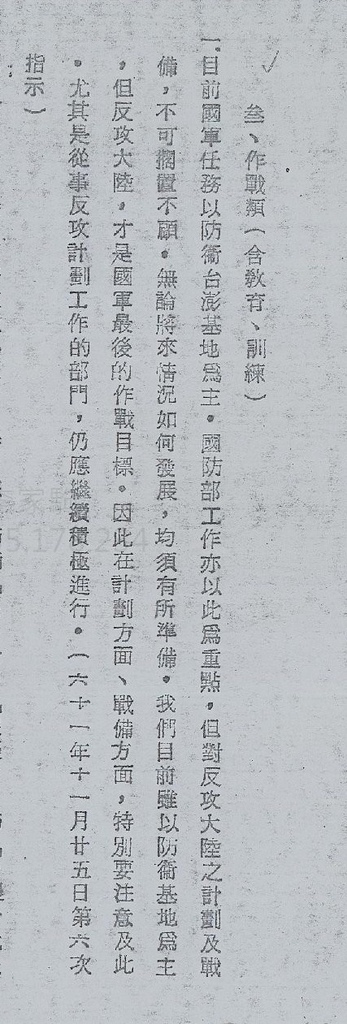 叁、作戰類（含教育、訓練）
一、目前國軍任務以防衞台澎基地爲主。國防部工作亦以此爲重點，但對反攻大陸之計劃及戰
備，不可擱置不顧。無論將來情況如何發展，均須有所準備。我們目前雖以防衞基地爲主
，但反攻大陸，才是國軍最後的作戰目標。因此在計劃方面、戰備方面，特別要注意及此
。尤其是從事反攻計劃工作的部門，仍應繼續積極進行。（六十一年十一月廿五日第六次
指示）